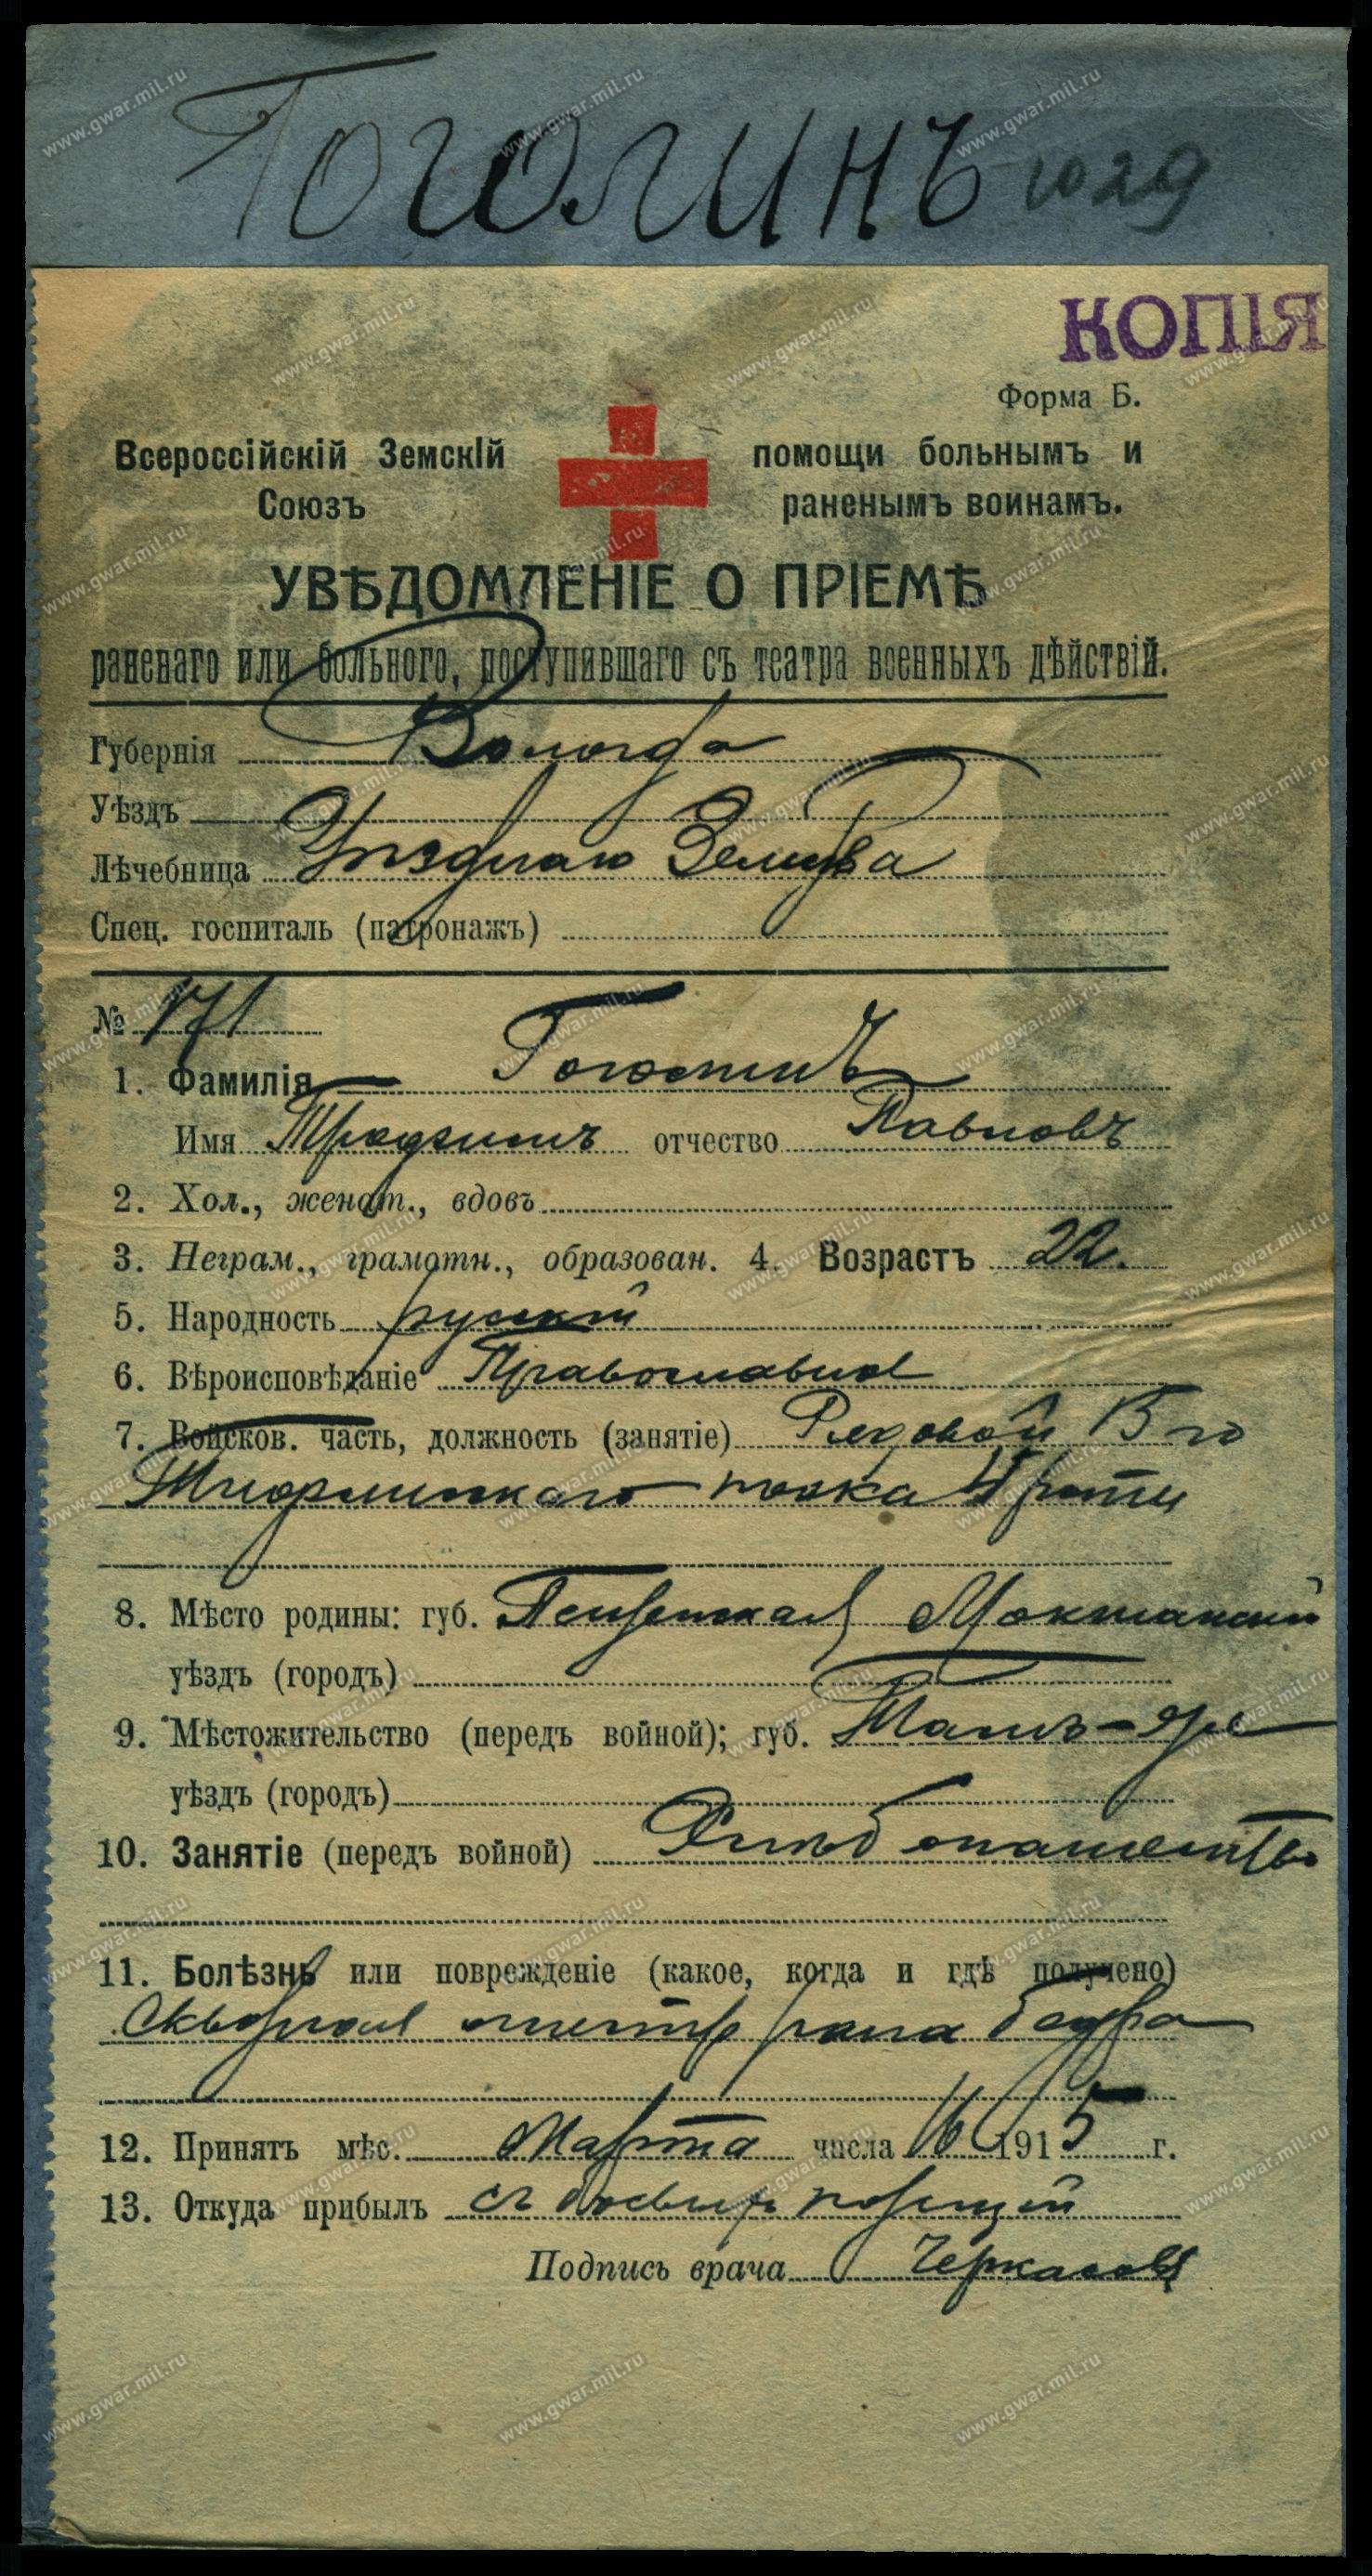 Гоголинъ 1029
КОПІЯ
Форма Б.
Всероссійскій Земскій помощи больнымъ и
Союзъ раненымъ воинамъ.
УВѢДОМЛЕНІЕ О ПРІЕМѢ
раненаго или больного, поступившаго съ театра военныхъ дѣйствій.
Губернія Вологда
Уѣздъ
Лѣчебница Уѣзднаго Земства
Спец. госпиталь (патронажъ)
№ 171
1. Фамилія Гоголинъ
Имя отчество Павловъ
2. Хол., женат., вдовъ
3. Неграм., грамотн., образован. 4. Возрастъ 22.
5. Народность русскій
6. Вѣроисповѣданіе Православна
7. Войсков. часть, должность (занятіе) Рядовой 15 го
полка 4 роты
8. Мѣсто родины: губ. Пензенская Мокшанскій
уѣздъ (городъ)
9. Мѣстожительство (передъ войной); губ.
уѣздъ (городъ)
10. Занятіе (передъ войной) Хлѣбопашество
11. Болѣзнь или поврежденіе (какое, когда и гдѣ получено)
Сквозная рана бедра
12. Принятъ мѣс. Марта числа 16 1915 г.
13. Откуда прибылъ съ боевыхъ позицій
Подпись врача Черкасовъ
www.gwar.mil.ru